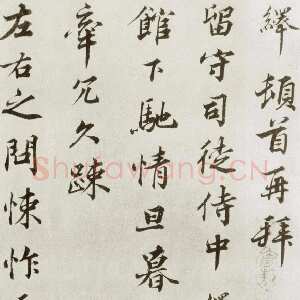 繹頓首再拜
留守司徒侍中
館下馳情旦暮
率冗久疎
左右之問悚怍
Shufawang.CN